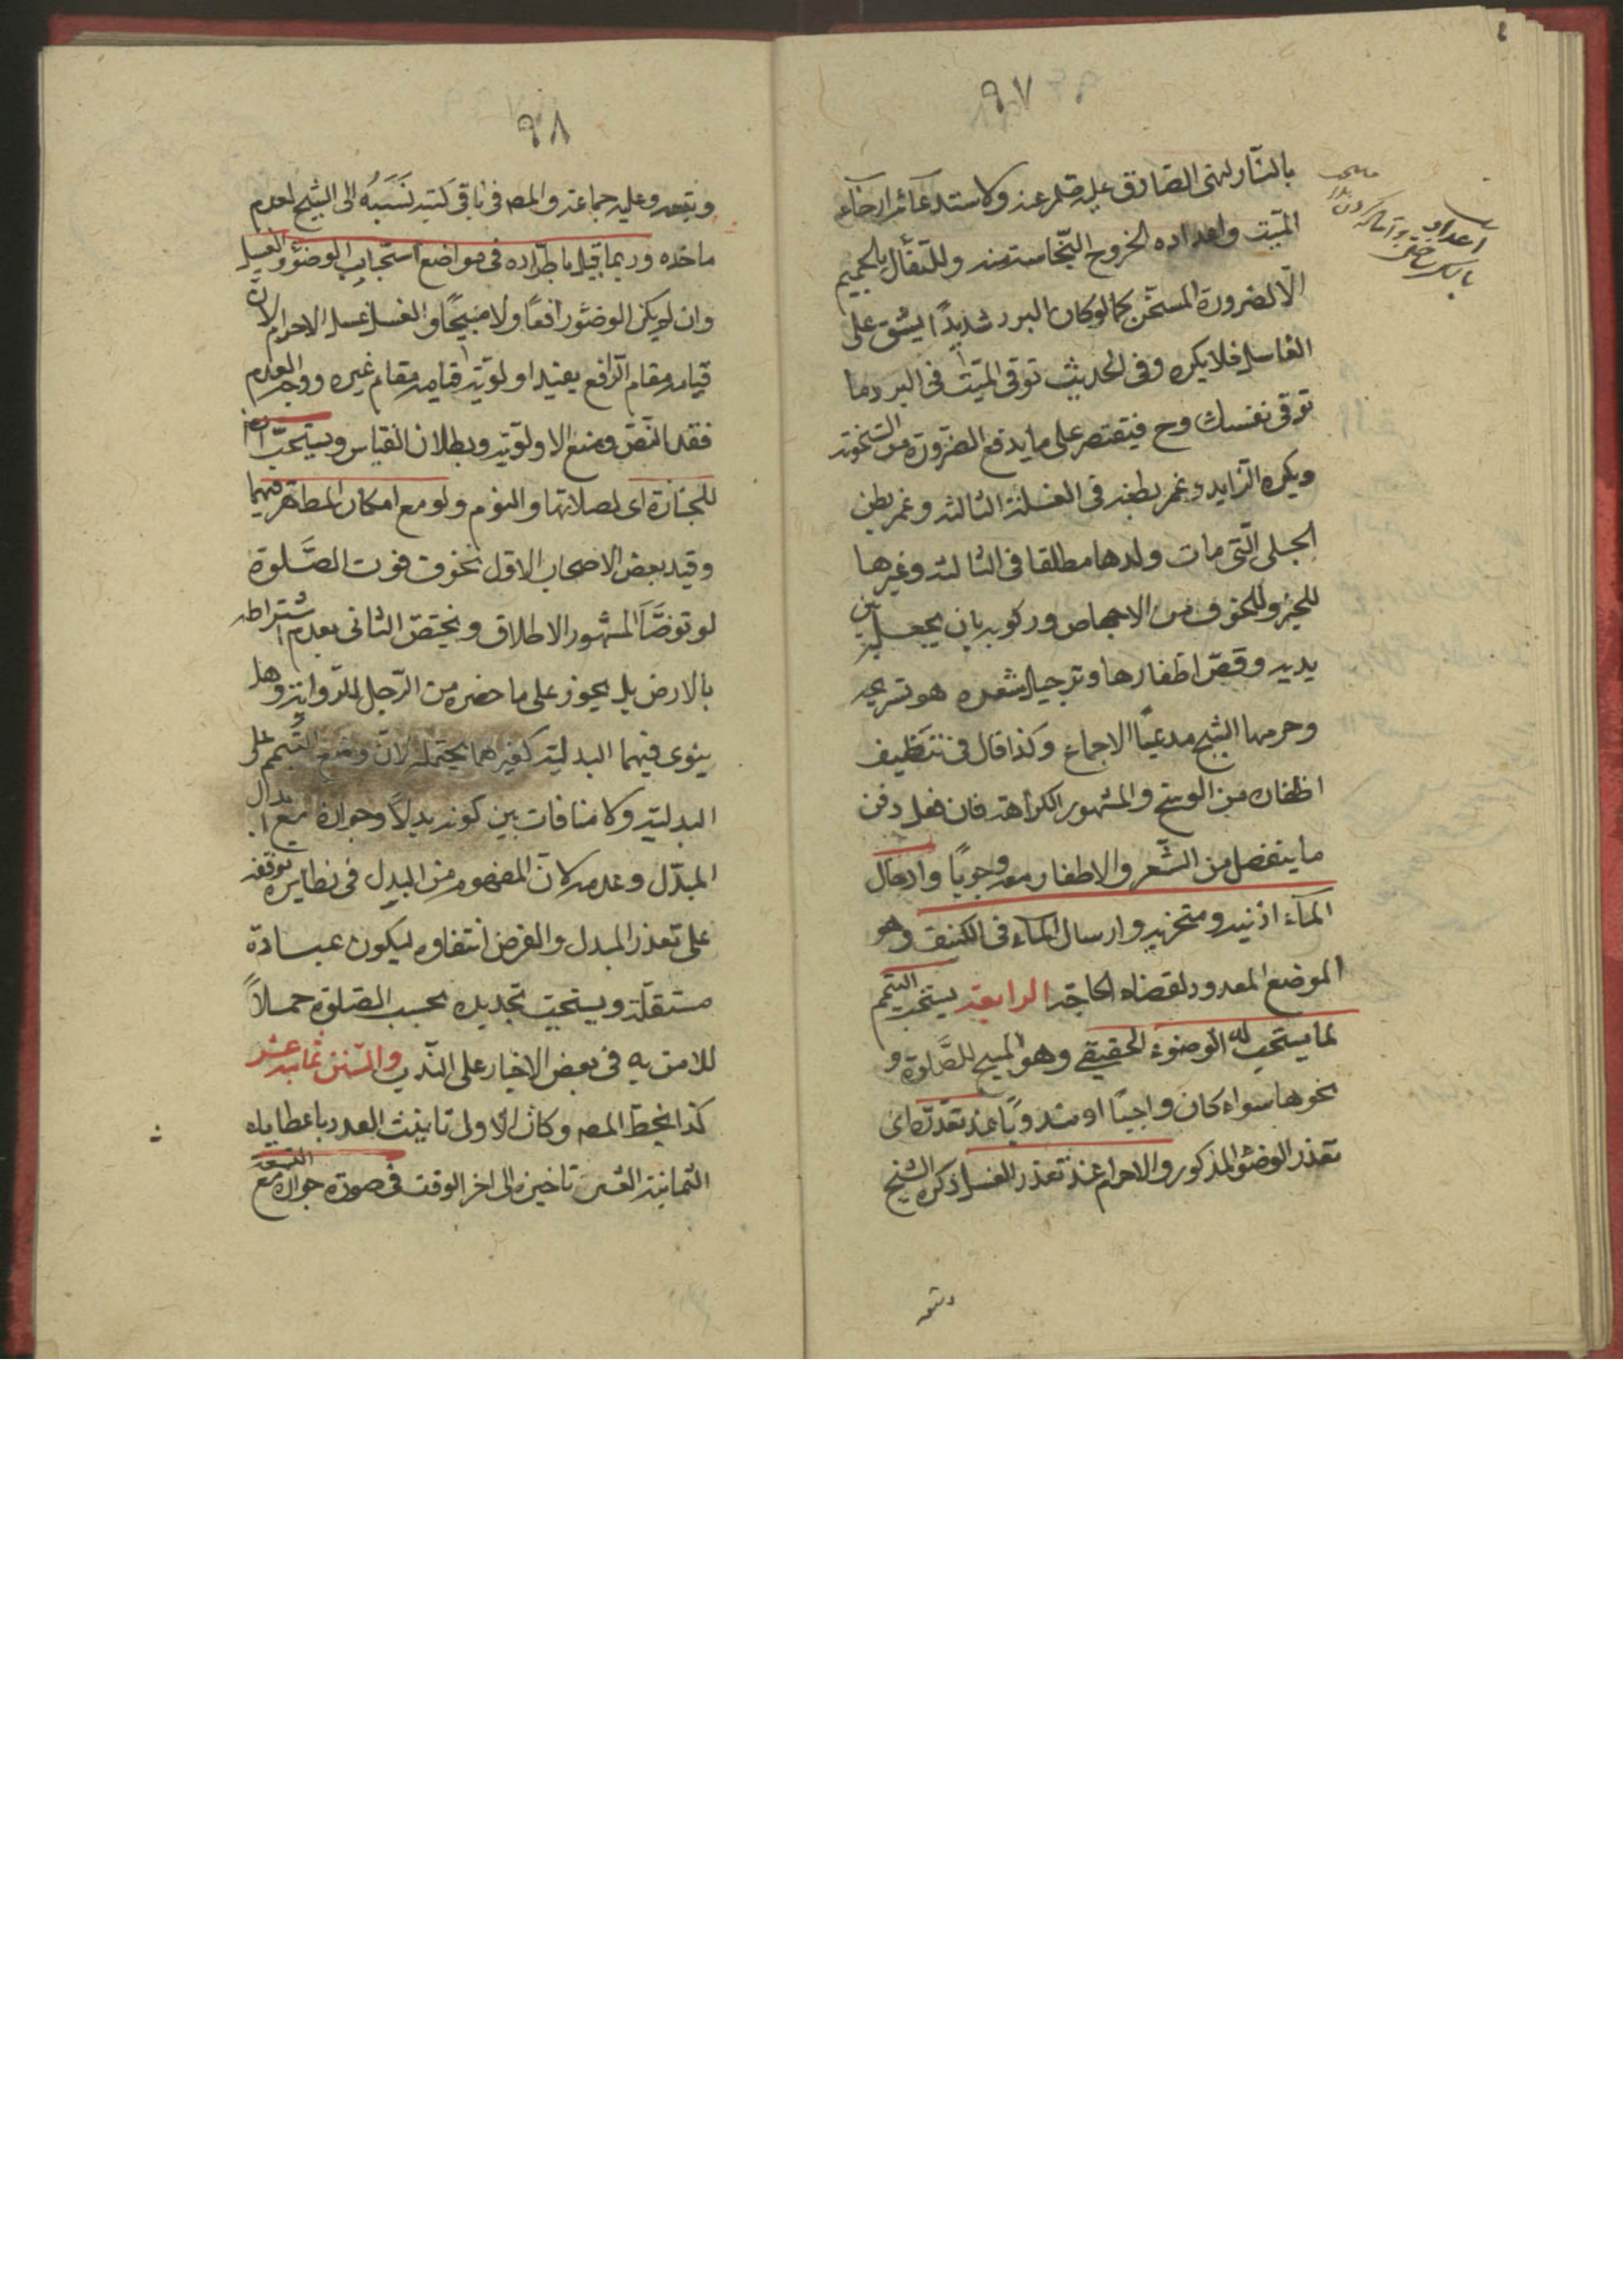 ٩٧
بالنار لنهى الصادق عليه السلم عنه ولاستدعائه ارخاء
الميت واعداده لخروج النجاسة منه وللتفأل بالحميم
الا لضرورة المسخن كما لو كان البرد شديدًا يشق على
الغاسل فلا يكره وفى الحديث توقى الميت فى البرد مما
توقى نفسك وح فيقتصر على ما يدفع الضرورة من السخونة
ويكره الزايد وغمز بطنه فى الغسلة الثالثة وغمز بطن
الحبلى التى مات ولدها مطلقا فى الثالثة وغيرها
للخبر وللخوف من الاجهاض وركوبه بان يجعله بين
يديه وقص اظفارها وترجيل شعره هو تسريحه
وحرمها الشيخ مدعيًا الاجماع وكذا قال فى تنظيف
اظفاره من الوسخ والمشهور الكراهة فان فعل دفن
ما ينفصل من الشعر والاظفار معه وجوبًا وادخال
الماء اذنيه ومنخريه وارسال الماء فى الكنيف وهو
الموضع المعدود لقضاء الحاجة الرابعة يستحب التيمم
لما يستحب له الوضوء الحقيقى وهو المبيح للصلوة و
نحوها سواء كان واجبًا او مندوبًا عند تعذره اى
تعذر الوضوء المذكور والاحرام عند تعذر الغسل ذكره الشيخ
وتبعه
٩٨
وتبعه وعليه جماعة والمصـ فى باقى كتبه نَسَبَهُ الى الشيخ لعدم
ماخذه وربما قيل باطراده فى مواضع استحباب الوضوء والغسل
وان لم يكن الوضوء رافعًا ولا مبيحًا والغسل غسل الاحرام لان
قيامه مقام الرافع يفيد اولوية قيامه مقام غيره ووجه العدم
فقد النص ومنع الاولوية وبطلان القياس ويستحب ايضا
للجنازة اى لصلاتها والنوم ولو مع امكان المطاهر فيهما
وقيد بعض الاصحاب الاول بخوف فوت الصلوة
لو توضأ المشهور الاطلاق ويختص الثانى بعدم اشتراطه
بالارض بل يجوز على ما حضره من الرحل للرواية وهل
ينوى فيهما البدلية كغيرهما يحتمله لان وضع التيمم على
البدلية ولا منافات بين كونه بدلاً وجوازه مع ابدال
المبدل وعدمه لان المفهوم من البدل فى نظايره توقفه
على تعذر المبدل والفرض انتفاوه ليكون عبادة
مستقلة ويستحب تجديده بحسب الصلوة حملاً
للامر به فى بعض الاخبار على الندب والسنن ثمانية عشر
كذا بخط المصـ وكان الاولى تانيث العدد باعطاياه
الثمانية العشر تاخيره الى اخر الوقت فى صورة جوازه مع السعة